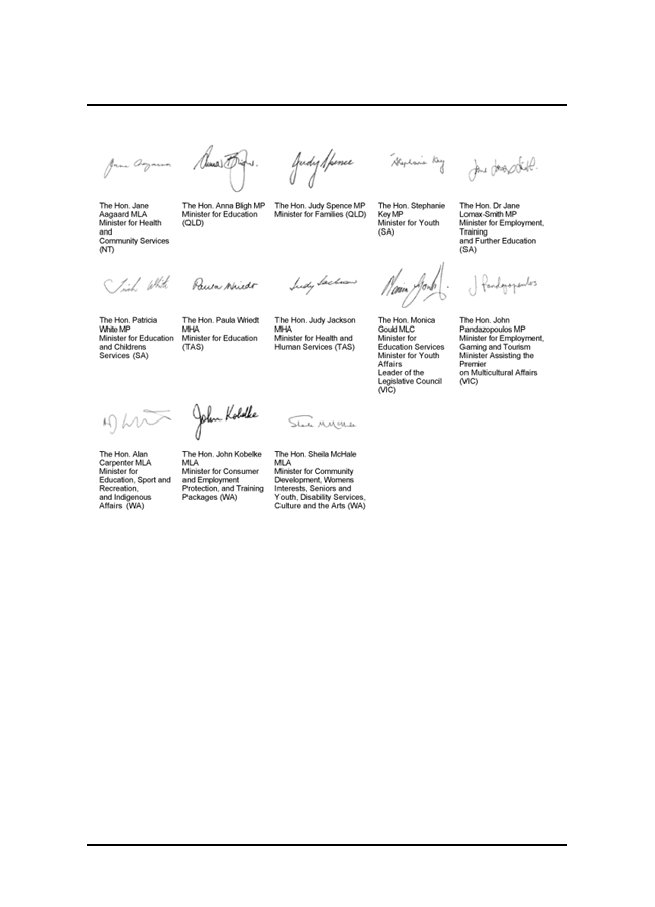 Jane Aagaard
Anna Bligh
Judy Spence
Stephanie Key
Jane Lomax-Smith
The Hon. Jane
Aagaard MLA
Minister for Health
and
Community Services
(NT)
The Hon. Anna Bligh MP
Minister for Education
(QLD)
The Hon. Judy Spence MP
Minister for Families (QLD)
The Hon. Stephanie
Key MP
Minister for Youth
(SA)
The Hon. Dr Jane
Lomax-Smith MP
Minister for Employment,
Training
and Further Education
(SA)
Trish White
Paula Wriedt
Judy Jackson
Monica Gould
J Pandazopoulos
The Hon. Patricia
White MP
Minister for Education
and Childrens
Services (SA)
The Hon. Paula Wriedt
MHA
Minister for Education
(TAS)
The Hon. Judy Jackson
MHA
Minister for Health and
Human Services (TAS)
The Hon. Monica
Gould MLC
Minister for
Education Services
Minister for Youth
Affairs
Leader of the
Legislative Council
(VIC)
The Hon. John
Pandazopoulos MP
Minister for Employment,
Gaming and Tourism
Minister Assisting the
Premier
on Multicultural Affairs
(VIC)
John Kobelke
Sheila McHale
The Hon. Alan
Carpenter MLA
Minister for
Education, Sport and
Recreation,
and Indigenous
Affairs (WA)
The Hon. John Kobelke
MLA
Minister for Consumer
and Employment
Protection, and Training
Packages (WA)
The Hon. Sheila McHale
MLA
Minister for Community
Development, Womens
Interests, Seniors and
Youth, Disability Services,
Culture and the Arts (WA)